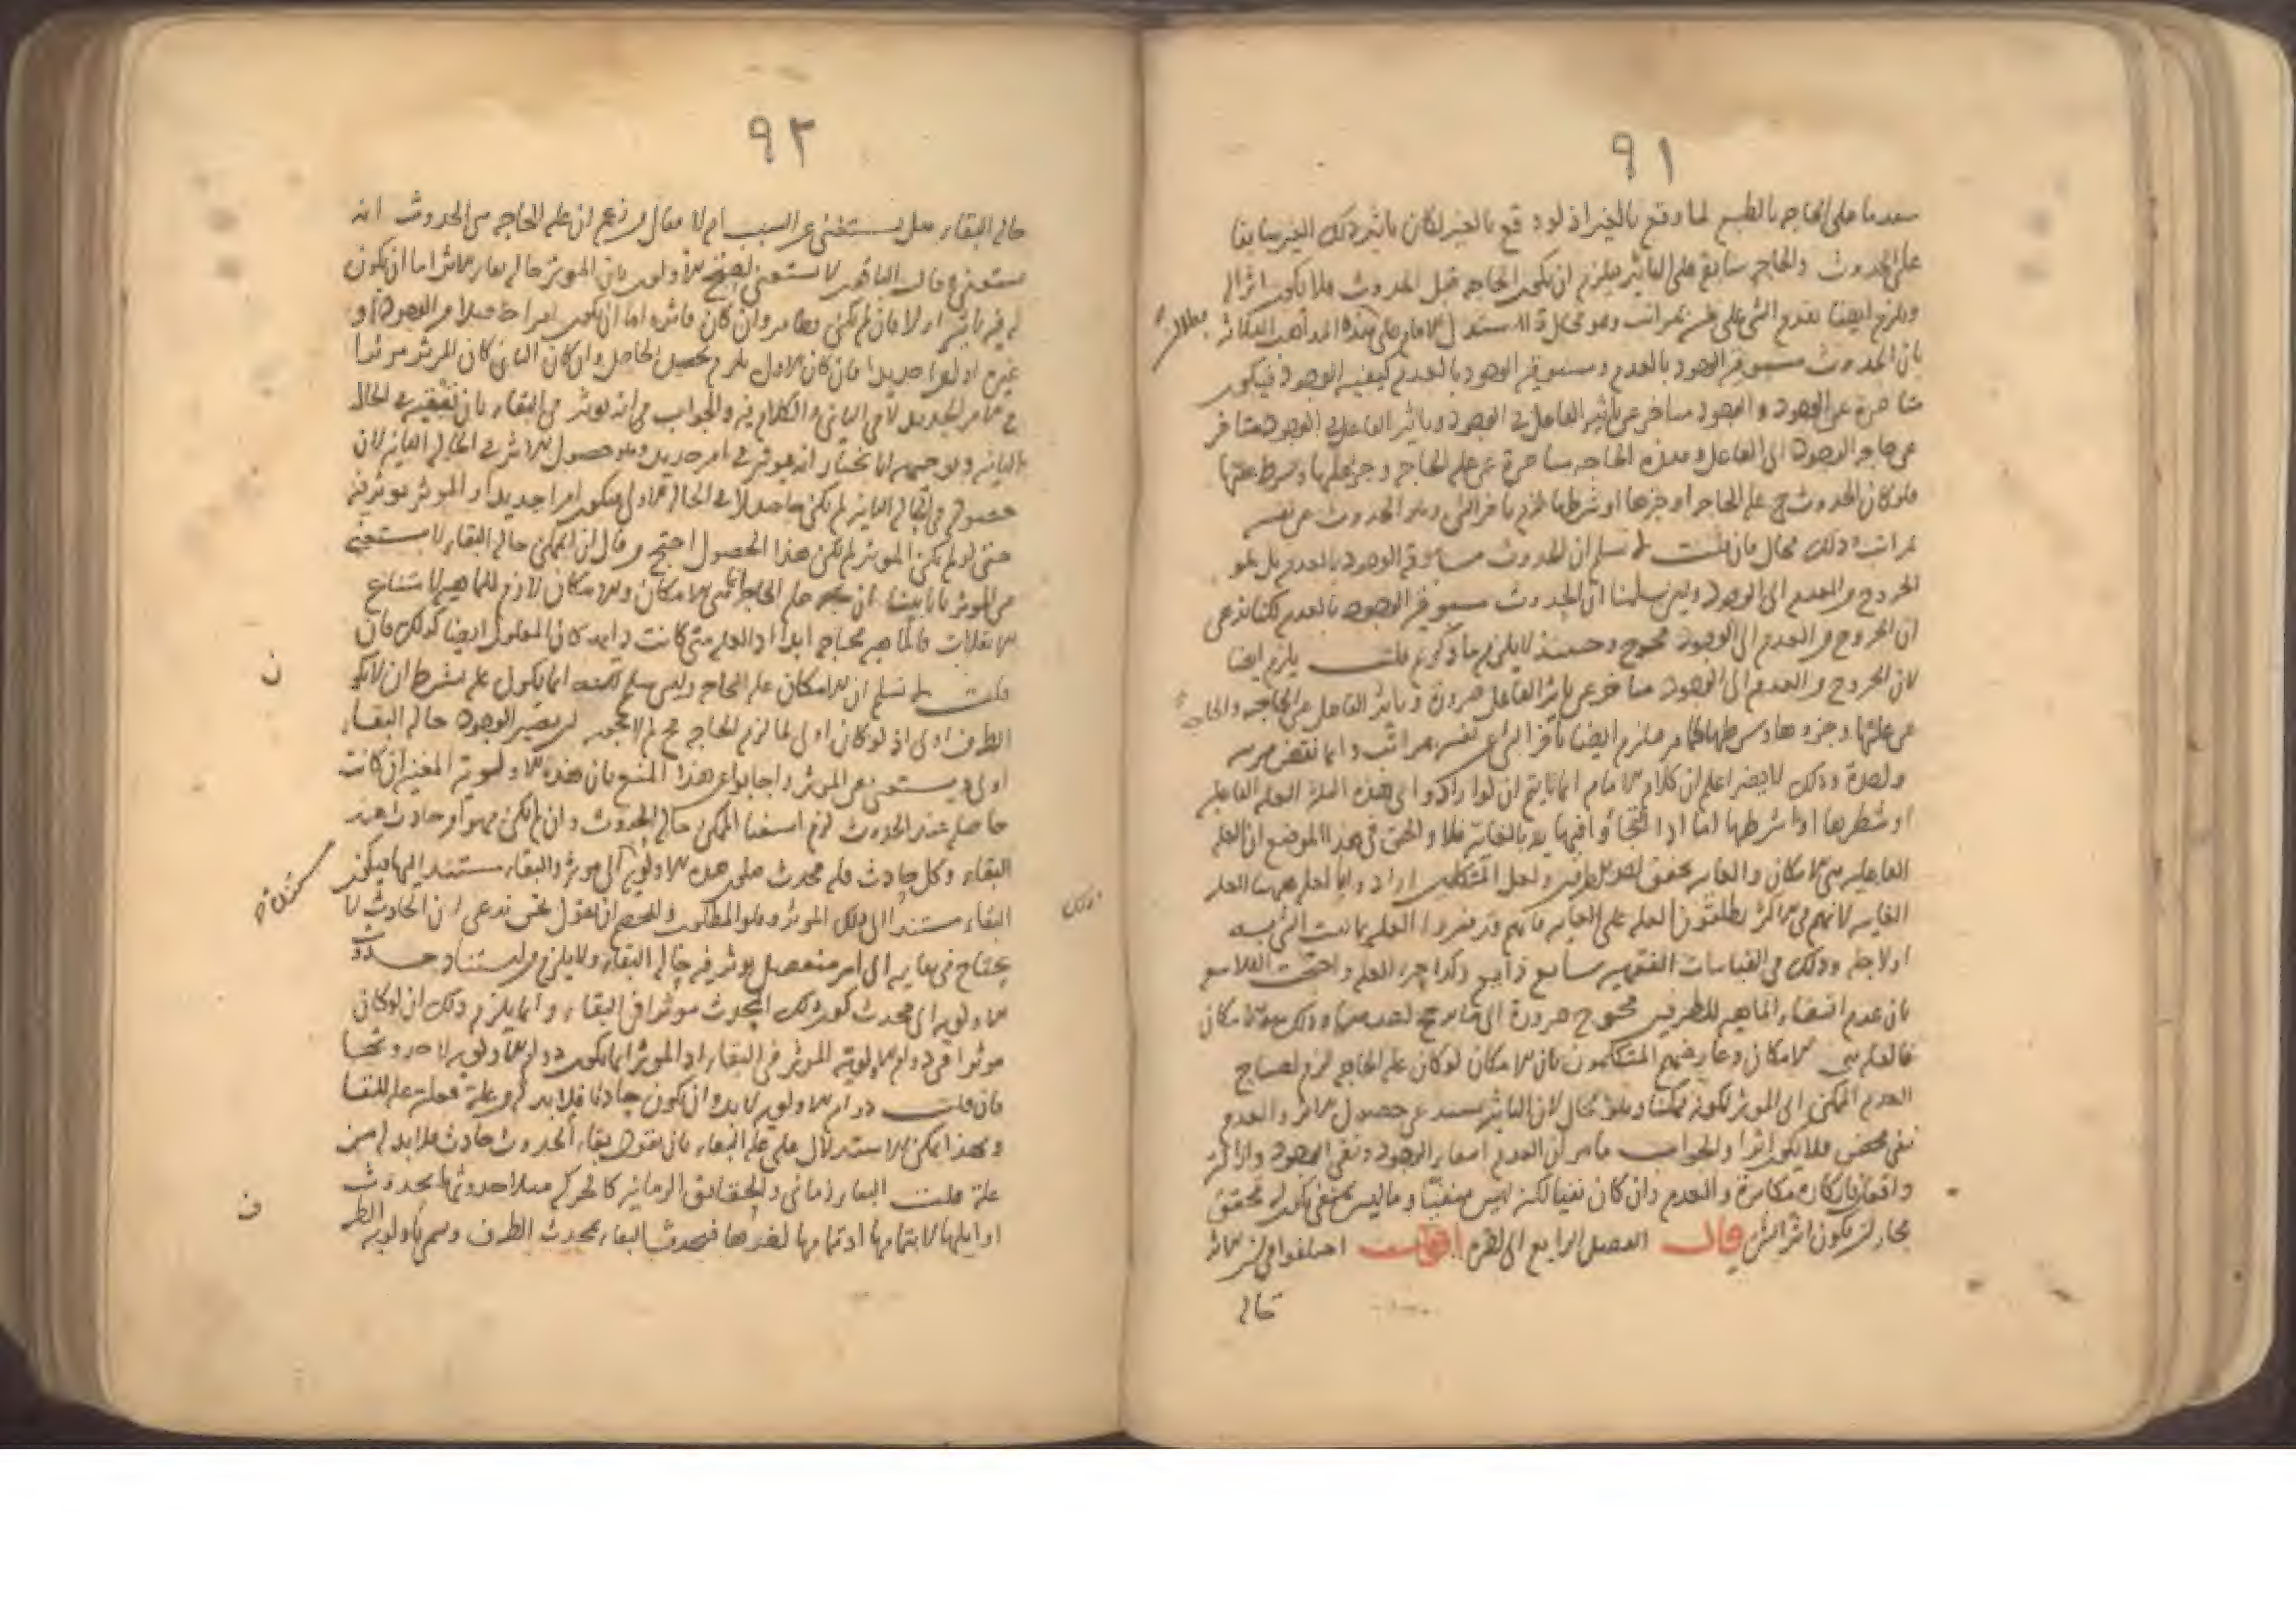 ٩١
على الحاجة بالطبع لما وقع بالغير اذ لو وقع بالغير لكان تأثير ذلك الغير سابقا
على الحدوث والحاجة سابقة على التأثير فيلزم ان يكون الحاجة قبل الحدوث فلا يكون اثرا له
ويلزم ايضا تقدم الشي على نفسه بمراتب وهو محال استدل الامام على هذه
بان الحدوث مسبوقية الوجود بالعدم ومسبوقية الوجود بالعدم كيفية الوجود فيكون
متاخرة عن الوجود والوجود متاخر عن تأثير الفاعل في الوجود وتأثير الفاعل في الوجود متاخر
عن حاجة الوجود الى الفاعل وهذه الحاجة متاخرة عن علة الحاجة وجزء علتها وشرط علتها
فلو كان الحدوث علة الحاجة او جزءها او شرطها لزم تاخر الشي وهو الحدوث عن نفسه
بمراتب وذلك محال فان قلت لم نسلم ان الحدوث مسبوقية الوجود بالعدم بل هو
الخروج من العدم الى الوجود ولئن سلمنا ان الحدوث مسبوقية الوجود بالعدم لكنا ندعى
ان الخروج من العدم الى الوجود محوج وحينئذ لا يلزم ما ذكرتم قلت يلزم ايضا
لان الخروج من العدم الى الوجود متاخر عن تأثير الفاعل ضرورة وتأثير الفاعل عن الحاجة والحاجة
عن علتها وجزءها وشرطها كما مر فيلزم ايضا تأخر الشي عن نفسه بمراتب وانما نقص مرتبة
واحدة وذلك لا يضر اعلم ان كلام الامام انما يتم ان لو ارادوا بهذه العلة العلة الفاعلية
او شطرها او شرطها اما اذا فلا والحق في هذا الموضع ان العلة
الفاعلية هي الامكان والغاية تحقق احد الطرفين ولعل المتكلمين ارادوا بالعلة ههنا العلة
الغاية لانهم في الاكثر يطلقون العلة على الغاية فانهم قد فسروا العلة بما ثبت الشي به
او لاجله وذلك في القياسات الفقهية شايع ذايع واحتجت الفلاسفة
بان عدم اقتضاء الماهية للطرفين محوج ضرورة الى مرجح لاحدهما وذلك هو الامكان
فالعلة هي الامكان وعارضهم المتكلمون بان الامكان لو كان علة الحاجة لزم احتياج
العدم الممكن الى المؤثر لكونه ممكنا وهو محال لان التأثير يستدعى حصول الاثر والعدم
نفى محض فلا يكون اثرا والجواب ما مر ان العدم
مكابرة والعدم وان كان نفيا لكنه ليس
قال الفصل الرابع الى اخره اقول اختلفوا في ان الاثر
حالة
٩٢
حالة البقاء هل يستغنى عن السبب ام لا فقال من زعم ان علة الحاجة هي الحدوث انه
مستغنى وقال الباقون لا يستغنى احتج الاولون بان المؤثر حالة بقاء الاثر اما ان يكون
له فيه تأثير او لا فان لم يكن فظاهر وان كان فاثره اما ان يكون امرا حاصلا هو الوجود او
غيره او امرا جديدا فان كان الاول يلزم تحصيل الحاصل وان كان الثانى كان المؤثر مؤثرا
في الامر الجديد لا في الباقى والكلام فيه والجواب في انه يؤثر في البقاء
الثانية وتوجيهه انا نختار انه يؤثر في امر جديد وهو حصول الاثر في الحالة الثانية لان
حصوله في الحالة الثانية لم يكن حاصلا في الحالة الاولى فيكون امرا جديدا والمؤثر يؤثر فيه
حتى لو لم يكن المؤثر لم يكن هذا الحصول احتج من قال ان الممكن حالة البقاء لا يستغنى
عن المؤثر بانا بينا ان علة الحاجة هي الامكان والامكان لازم للماهية لامتناع
الانقلاب فالماهية محتاجة ابدا اذ العلة متى كانت دايمة كان المعلول ايضا كذلك فان
قلت لم نسلم ان الامكان علة الحاجة انما يكون علة بشرط ان لا يكون
الطرف اولى اذ لو كان اولى لما لزم الحاجة لم لا يجوز ان يصير الوجود حالة البقاء
اولى ويستغنى عن المؤثر واجابوا عن هذا المنع بان هذه الاولوية المغنية ان كانت
حاصلة عند الحدوث لزم استغنا الممكن حالة الحدوث وان لم يكن فهو امر حادث عند
البقاء وكل حادث فله محدث فلهذه الاولوية مؤثر والبقاء مستند اليها فيكون
البقاء مستندا الى ذلك المؤثر وهو المطلوب وللخصم ان يقول نحن ندعى ان الحادث لا
يحتاج في بقايه الى امر منفصل يؤثر فيه حالة البقاء ولا يلزم من استناد حدوث
الاولوية الى محدث كون ذلك المحدث مؤثرا في البقاء وانما يلزم ذلك ان لو كان
مؤثرا في دوام الاولوية المؤثرة في البقاء اذ المؤثر انما يكون دوام الاولوية لا حدوثها
فان قلت دوام الاولوية لا بد وان يكون حادثا فلا بد له من علة فعلته علة للبقا
وبهذا يمكن الاستدلال على علة البقاء بان نقول بقاء الحدوث حادث فلا بد له من
علة قلت البقاء زمانى والحقايق الزمانية كالحركة مثلا حدوثها بحدوث
اوايلها لا بتمامها